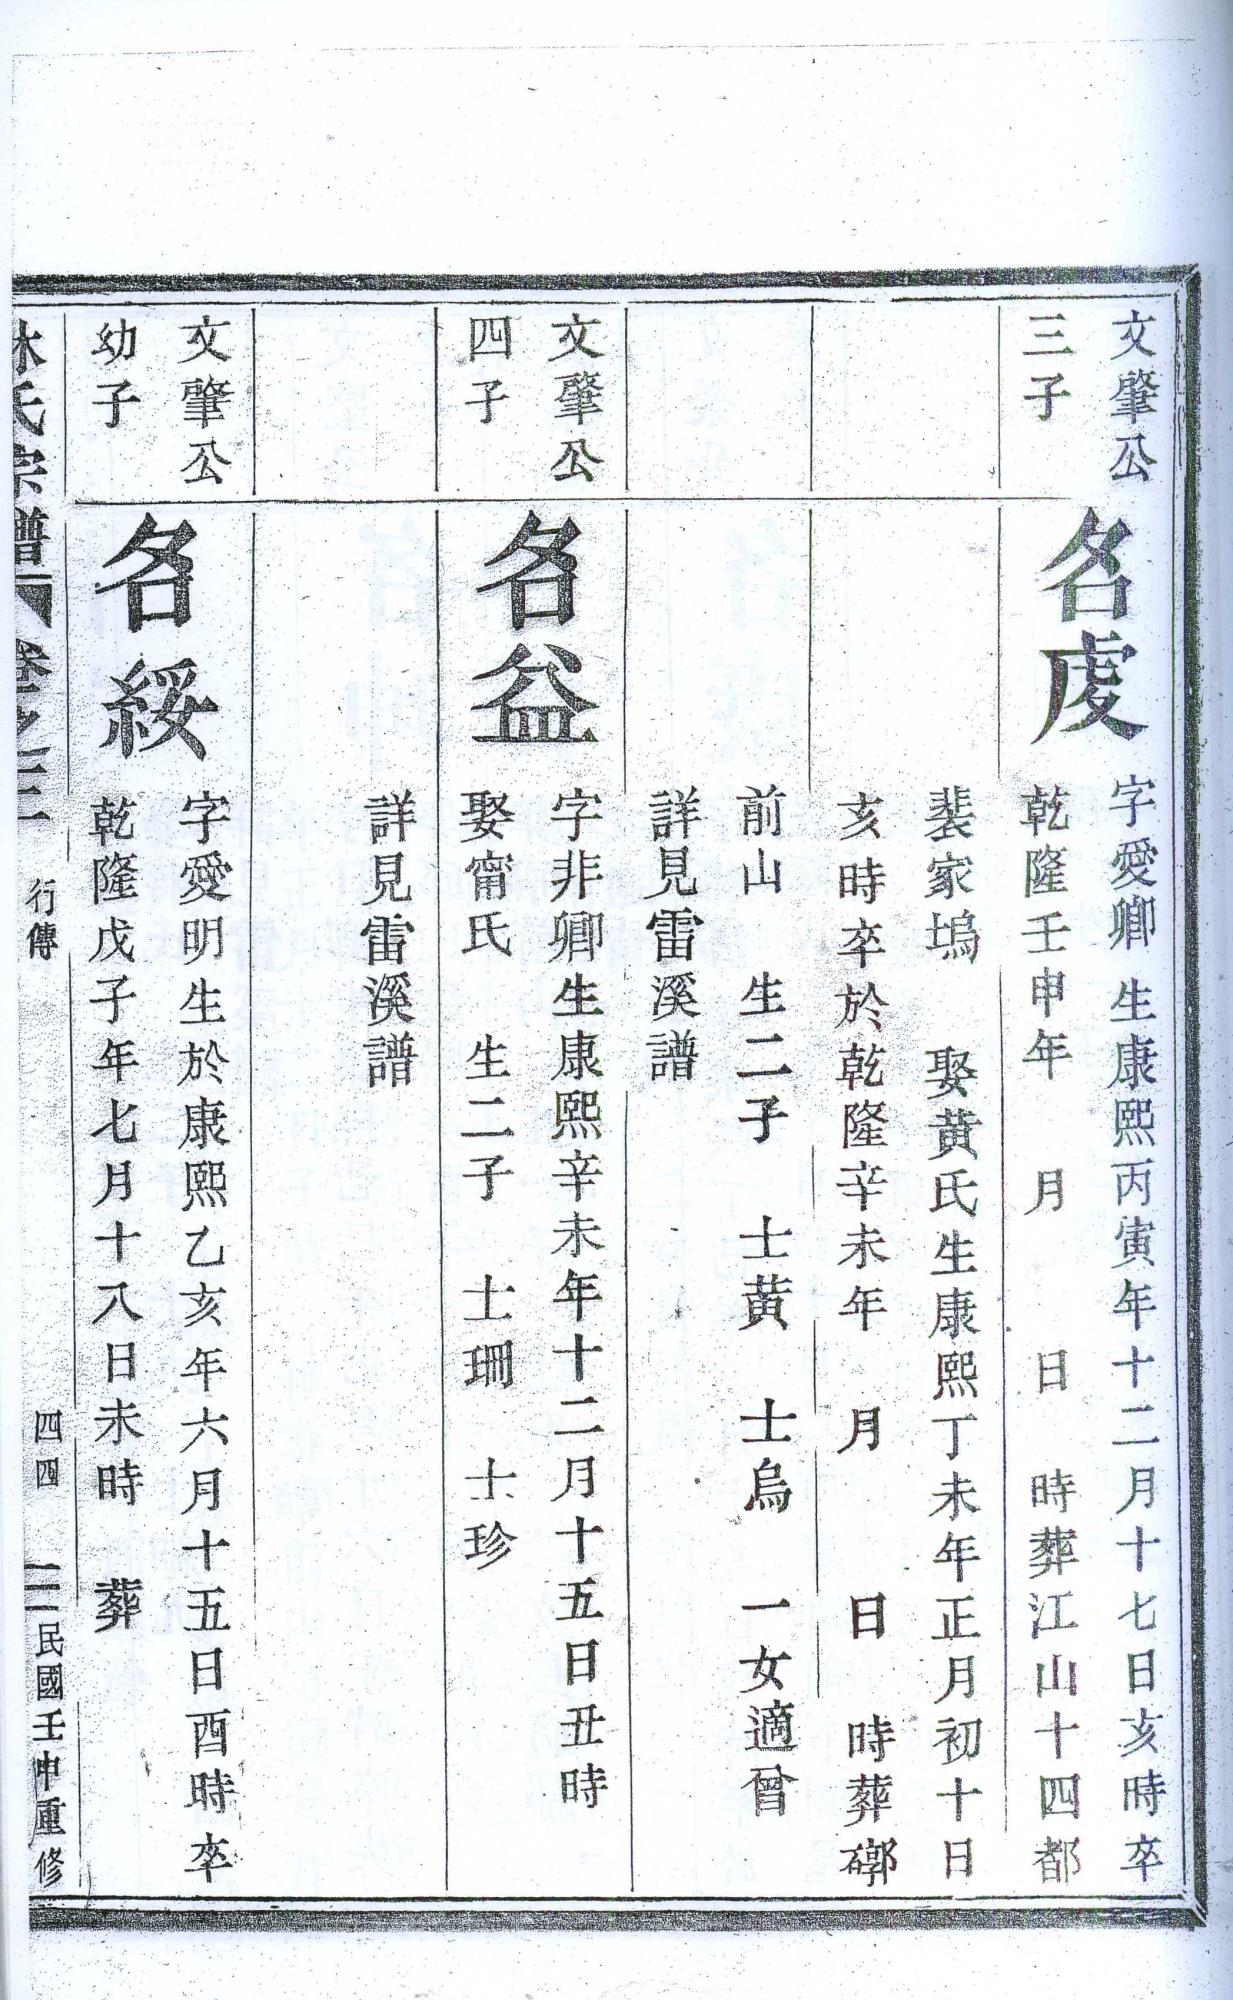 文肇公
三子
名虔
字愛卿 生康熙丙寅年十二月十七日亥時卒
乾隆壬申年 月 日 時葬江山十四都
裴家塢 娶黃氏生康熙丁未年正月初十日
亥時卒於乾隆辛未年 月 日 時葬
前山 生二子 士黃 士烏 一女適曾
詳見雷溪譜
文肇公
四子
名益
字非卿生康熙辛未年十二月十五日丑時
娶甯氏 生二子 士珊 士珍
詳見雷溪譜
文肇公
幼子
名綏
字愛明生於康熙乙亥年六月十五日酉時卒
乾隆戊子年七月十八日未時 葬
林氏宗譜 卷之三 行傳 四四 民國壬申重修